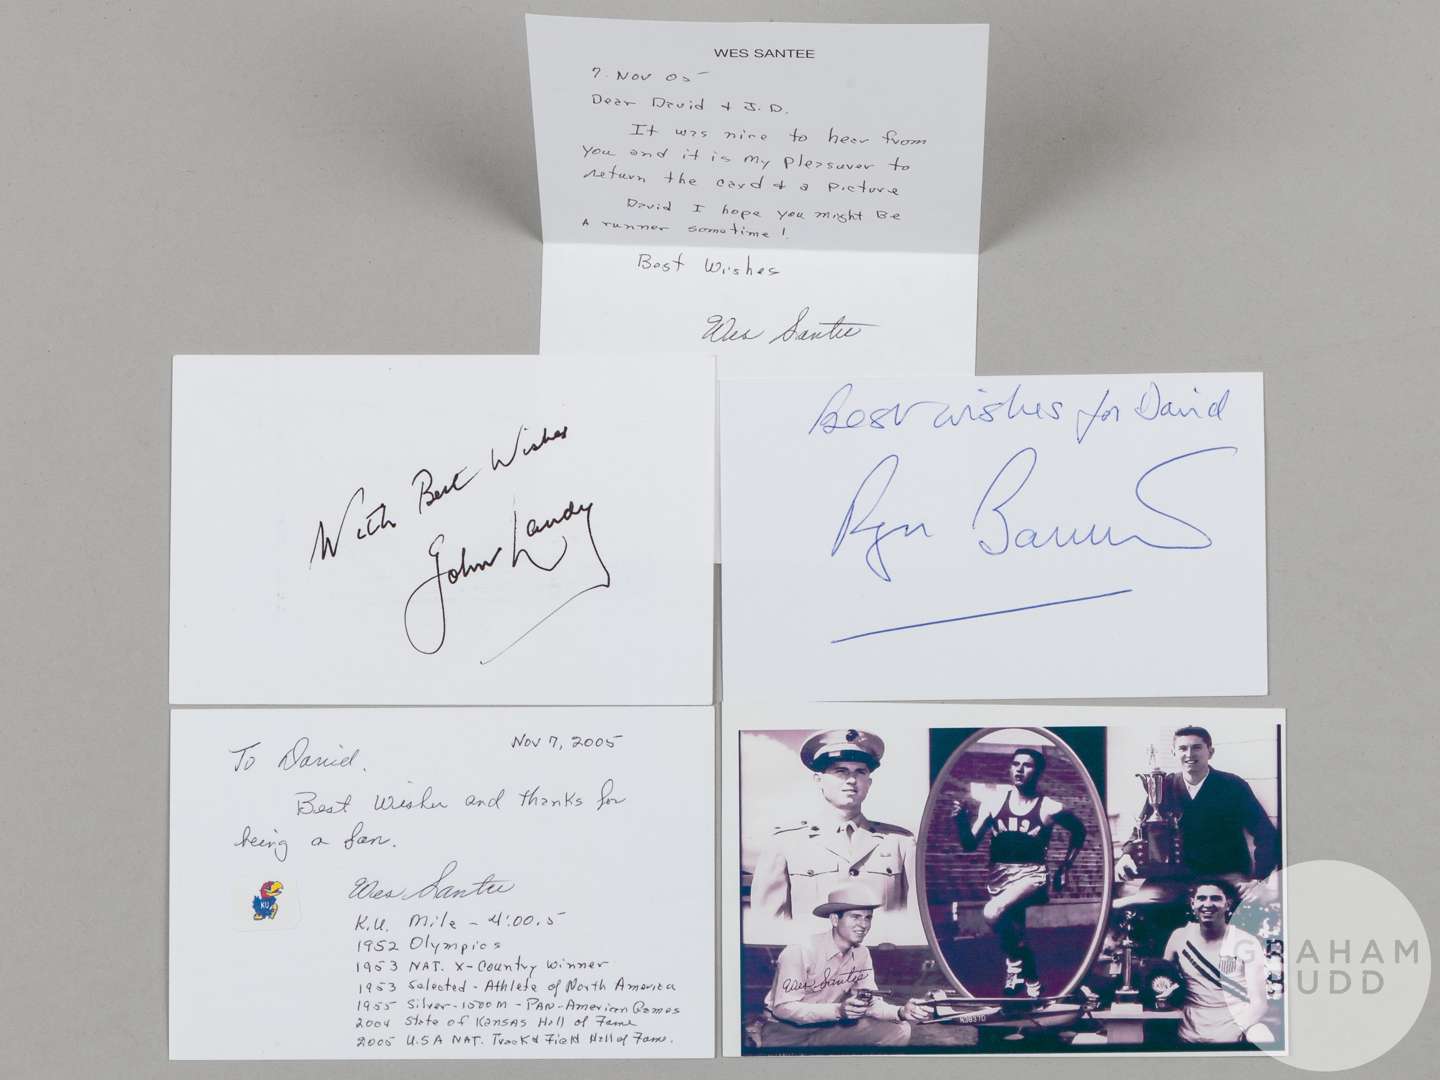 WES SANTEE
7. Nov 05
Dear David & J.D.
It was nice to hear from
you and it is my pleasuver to
return the card & a picture
David I hope you might Be
A runner sometime!
Best Wishes
Wes Santee
With Best Wishes
John Landy
Best wishes for David
Nov 7, 2005
To David.
Best Wishes and thanks for
being a fan.
Wes Santee
KU
K.U. Mile - 4:00.5
1952 Olympics
1953 NAT. X-Country Winner
1953 Selected - Athlete of North America
1955 Silver - 1500 M - PAN-American Games
2004 State of Kansas Hall of Fame
2005 USA NAT. Track & Field Hall of Fame.
Wes Santee
GRAHAM
BUDD